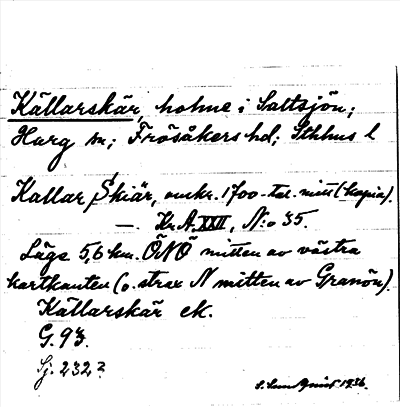 Källarskär, holme i Saltsjön;
Harg sn; Frösåkers hd; Sthlms l
Kallar Skiär, omkr. 1700-tal. mitt (kopia).
— Kr.A. XXII, N:o 35.
Läge 5,6 km. ÖNÖ mitten av västra
kartkanten (o. strax N mitten av Granön).
Källarskär ek.
G. 93.
Sj. 232?
S. Lundquist 1936.